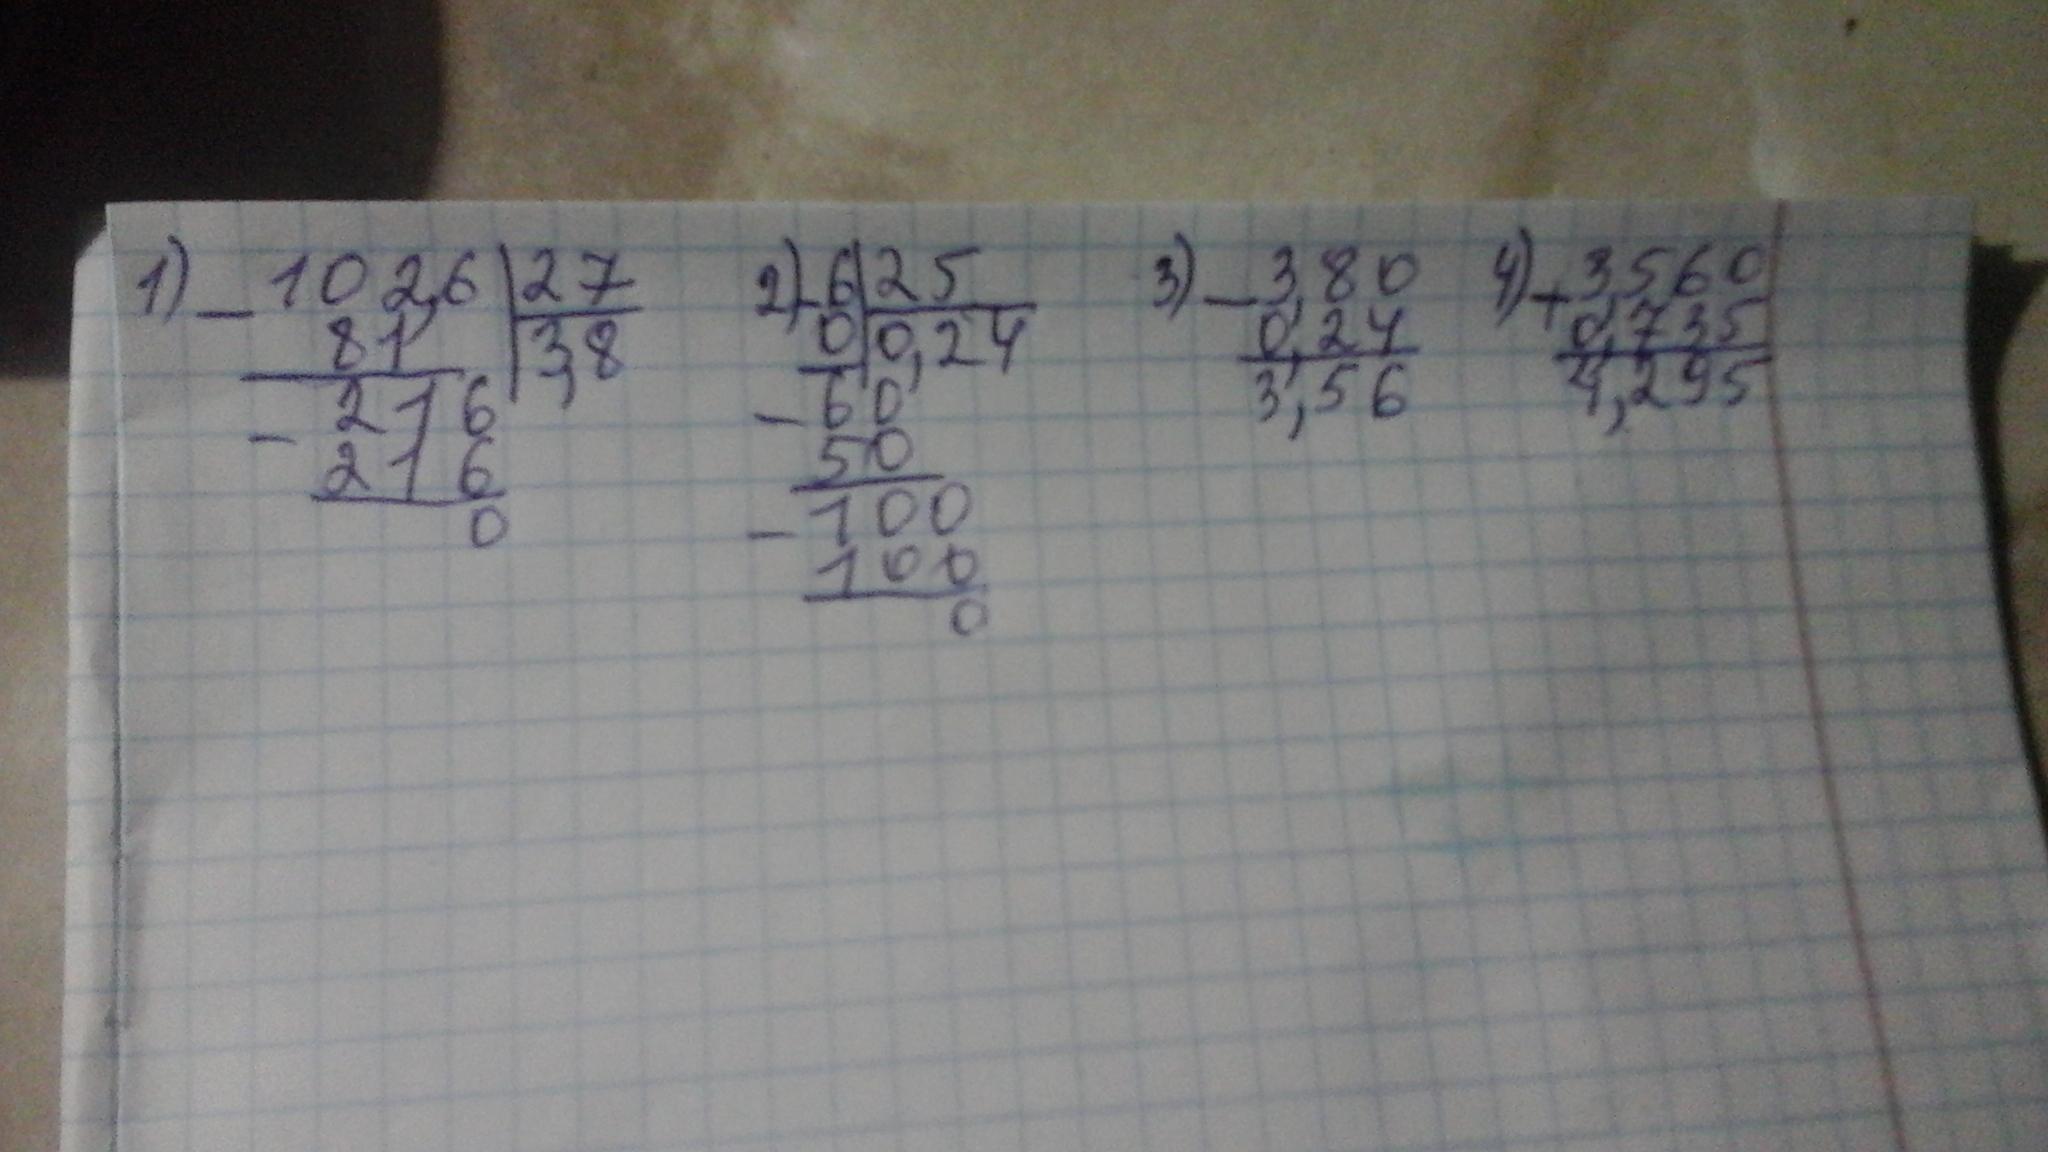 1) - 102,6 | 27
81 | 3,8
- 216
216
0
2) - 6 | 25
0 | 0,24
- 60
50
- 100
100
0
3) - 3,80
0,24
3,56
4) + 3,560
0,735
4,295